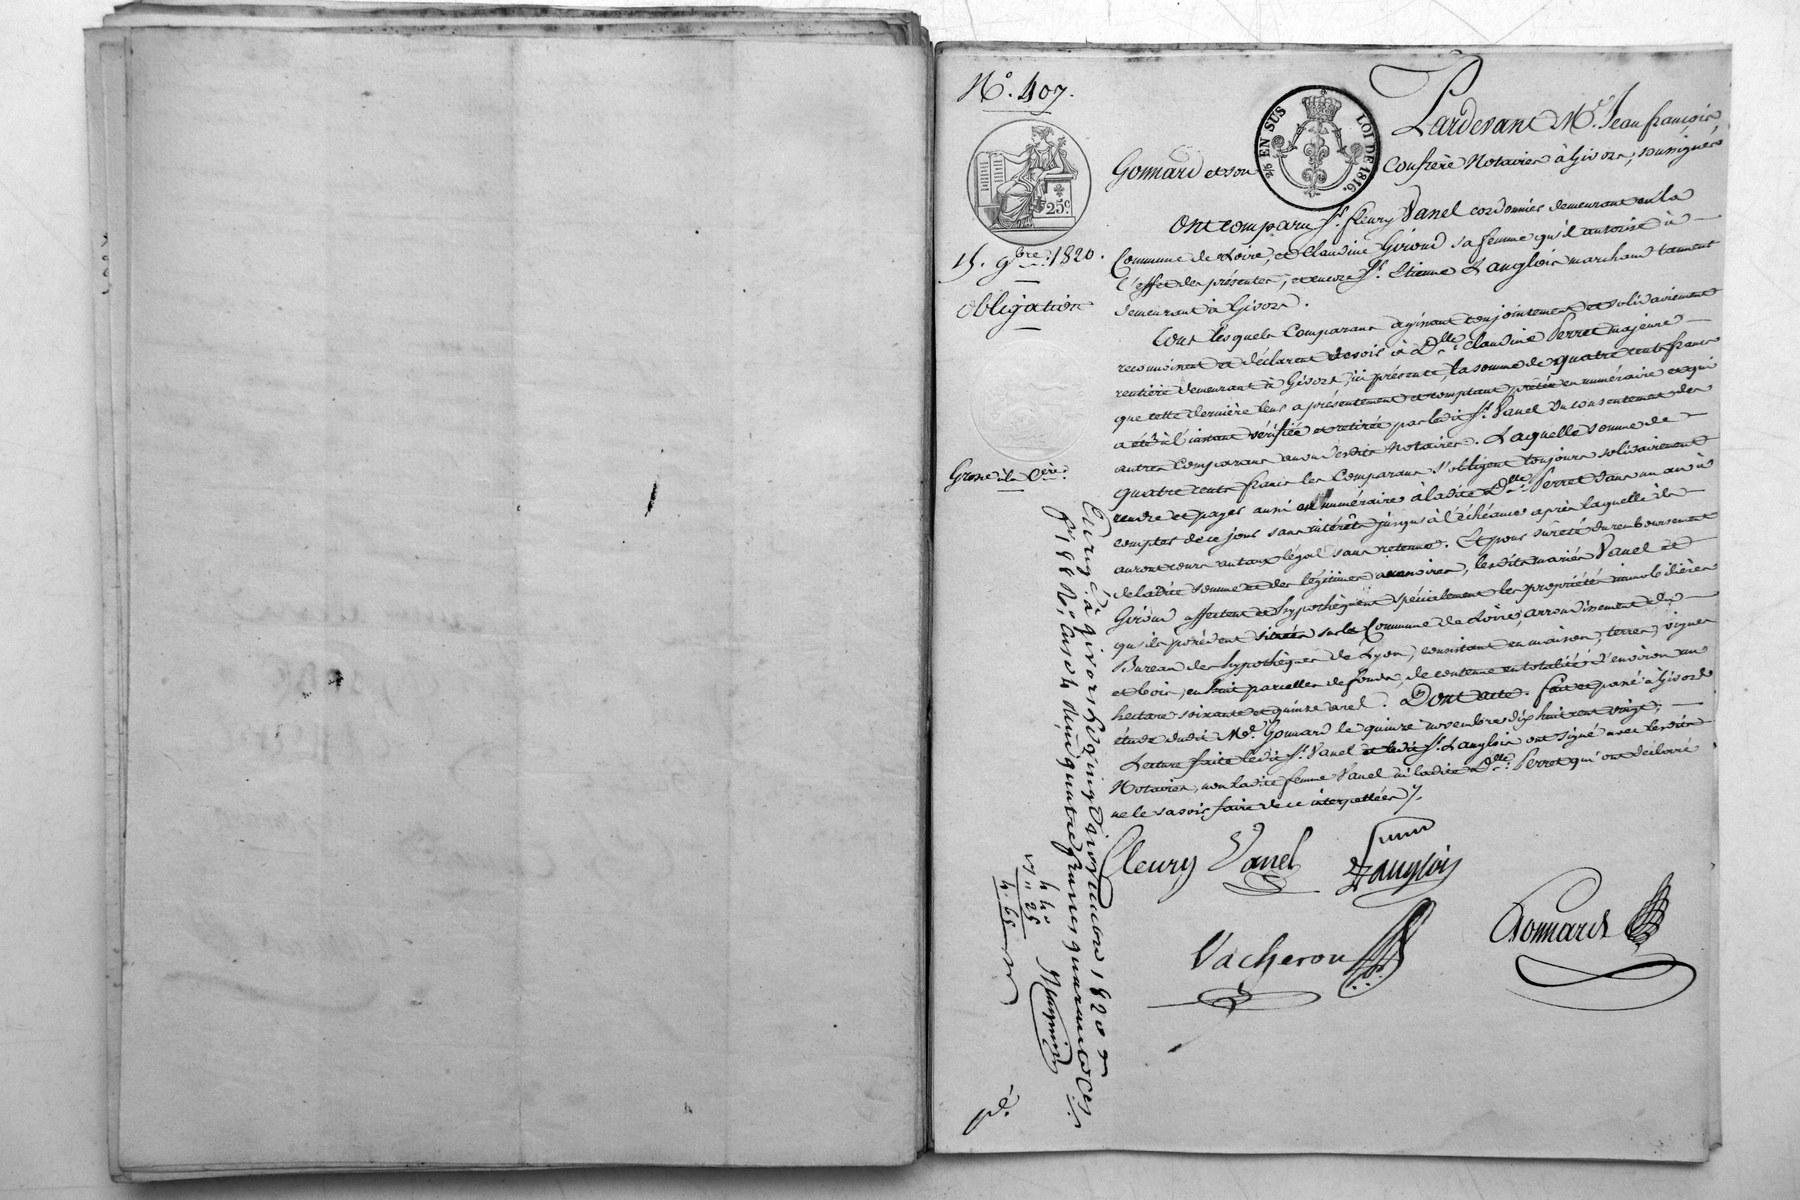 N.º 407.
2/10 EN SUS LOI DE 1816.
25.c
15. 9bre. 1820.
Obligation
Grosse à la Cière.
Pardevant Me. Jean françois
Gonnard et son Confrère Notaires à Givors, soussignés
Ont comparu Sr. fleury Vanel cordonnier demeurant en la
Commune de Loire, et Claudine Giroud sa femme qu'il autorise à
l'effet des présentes, et encore Sr. Etienne Langlois marchand tanneur
demeurant à Givors.
Tous lesquels Comparans agissant conjointement et solidairement
reconnoissent et déclarent devoir à Dlle. Claudine Perret majeure
rentière demeurant à Givors, ici présente, la somme de quatre cents francs
que cette dernière leur a présentement et comptant prêtée en numéraire et qui
a été à l'instant vérifiée et retirée par ledit Sr. Vanel du consentement des
autres Comparans au vu desdits Notaires. Laquelle somme de
quatre cents francs les Comparans s'obligent toujours solidairement
rendre et payer aussi en numéraire à ladite Dlle. Perret dans un an à
compter de ce jour sans intérêts jusqu'à l'échéance après laquelle ils
auront cours au taux légal sans retenue. Et pour sûreté du remboursement
de ladite somme et des légitimes accessoires, lesdits mariés Vanel et
Giroud affectent et hypothèquent spécialement les propriétés immobilières
qu'ils possèdent situées sur la Commune de Loire, arrondissement du
Bureau des hypothèques de Lyon, consistant en maison, terres, vignes
et bois, en huit parcelles de fonds, de contenue en totalité d'environ un
hectare soixante et quinze ares. Dont acte. fait et passé à Givors
étude dudit Me. Gonnard le quinze novembre dix huit cent vingt,
Lecture faite ledit Sr. Vanel et ledit Sr. Langlois ont signé avec lesdits
Notaires, non ladite femme Vanel ni ladite Dlle. Perret qui ont déclaré
ne le savoir faire de ce interpellées
fleury Vanel
Langlois
Vacheron
Gonnard
Enreg.é à givors le vingt novembre 1820
reçu quatre francs quarante ces.
4 40
" 25
4. 65